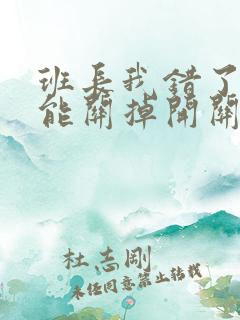 班长我错了
能关掉开关
杜志刚
未经同意禁止转载